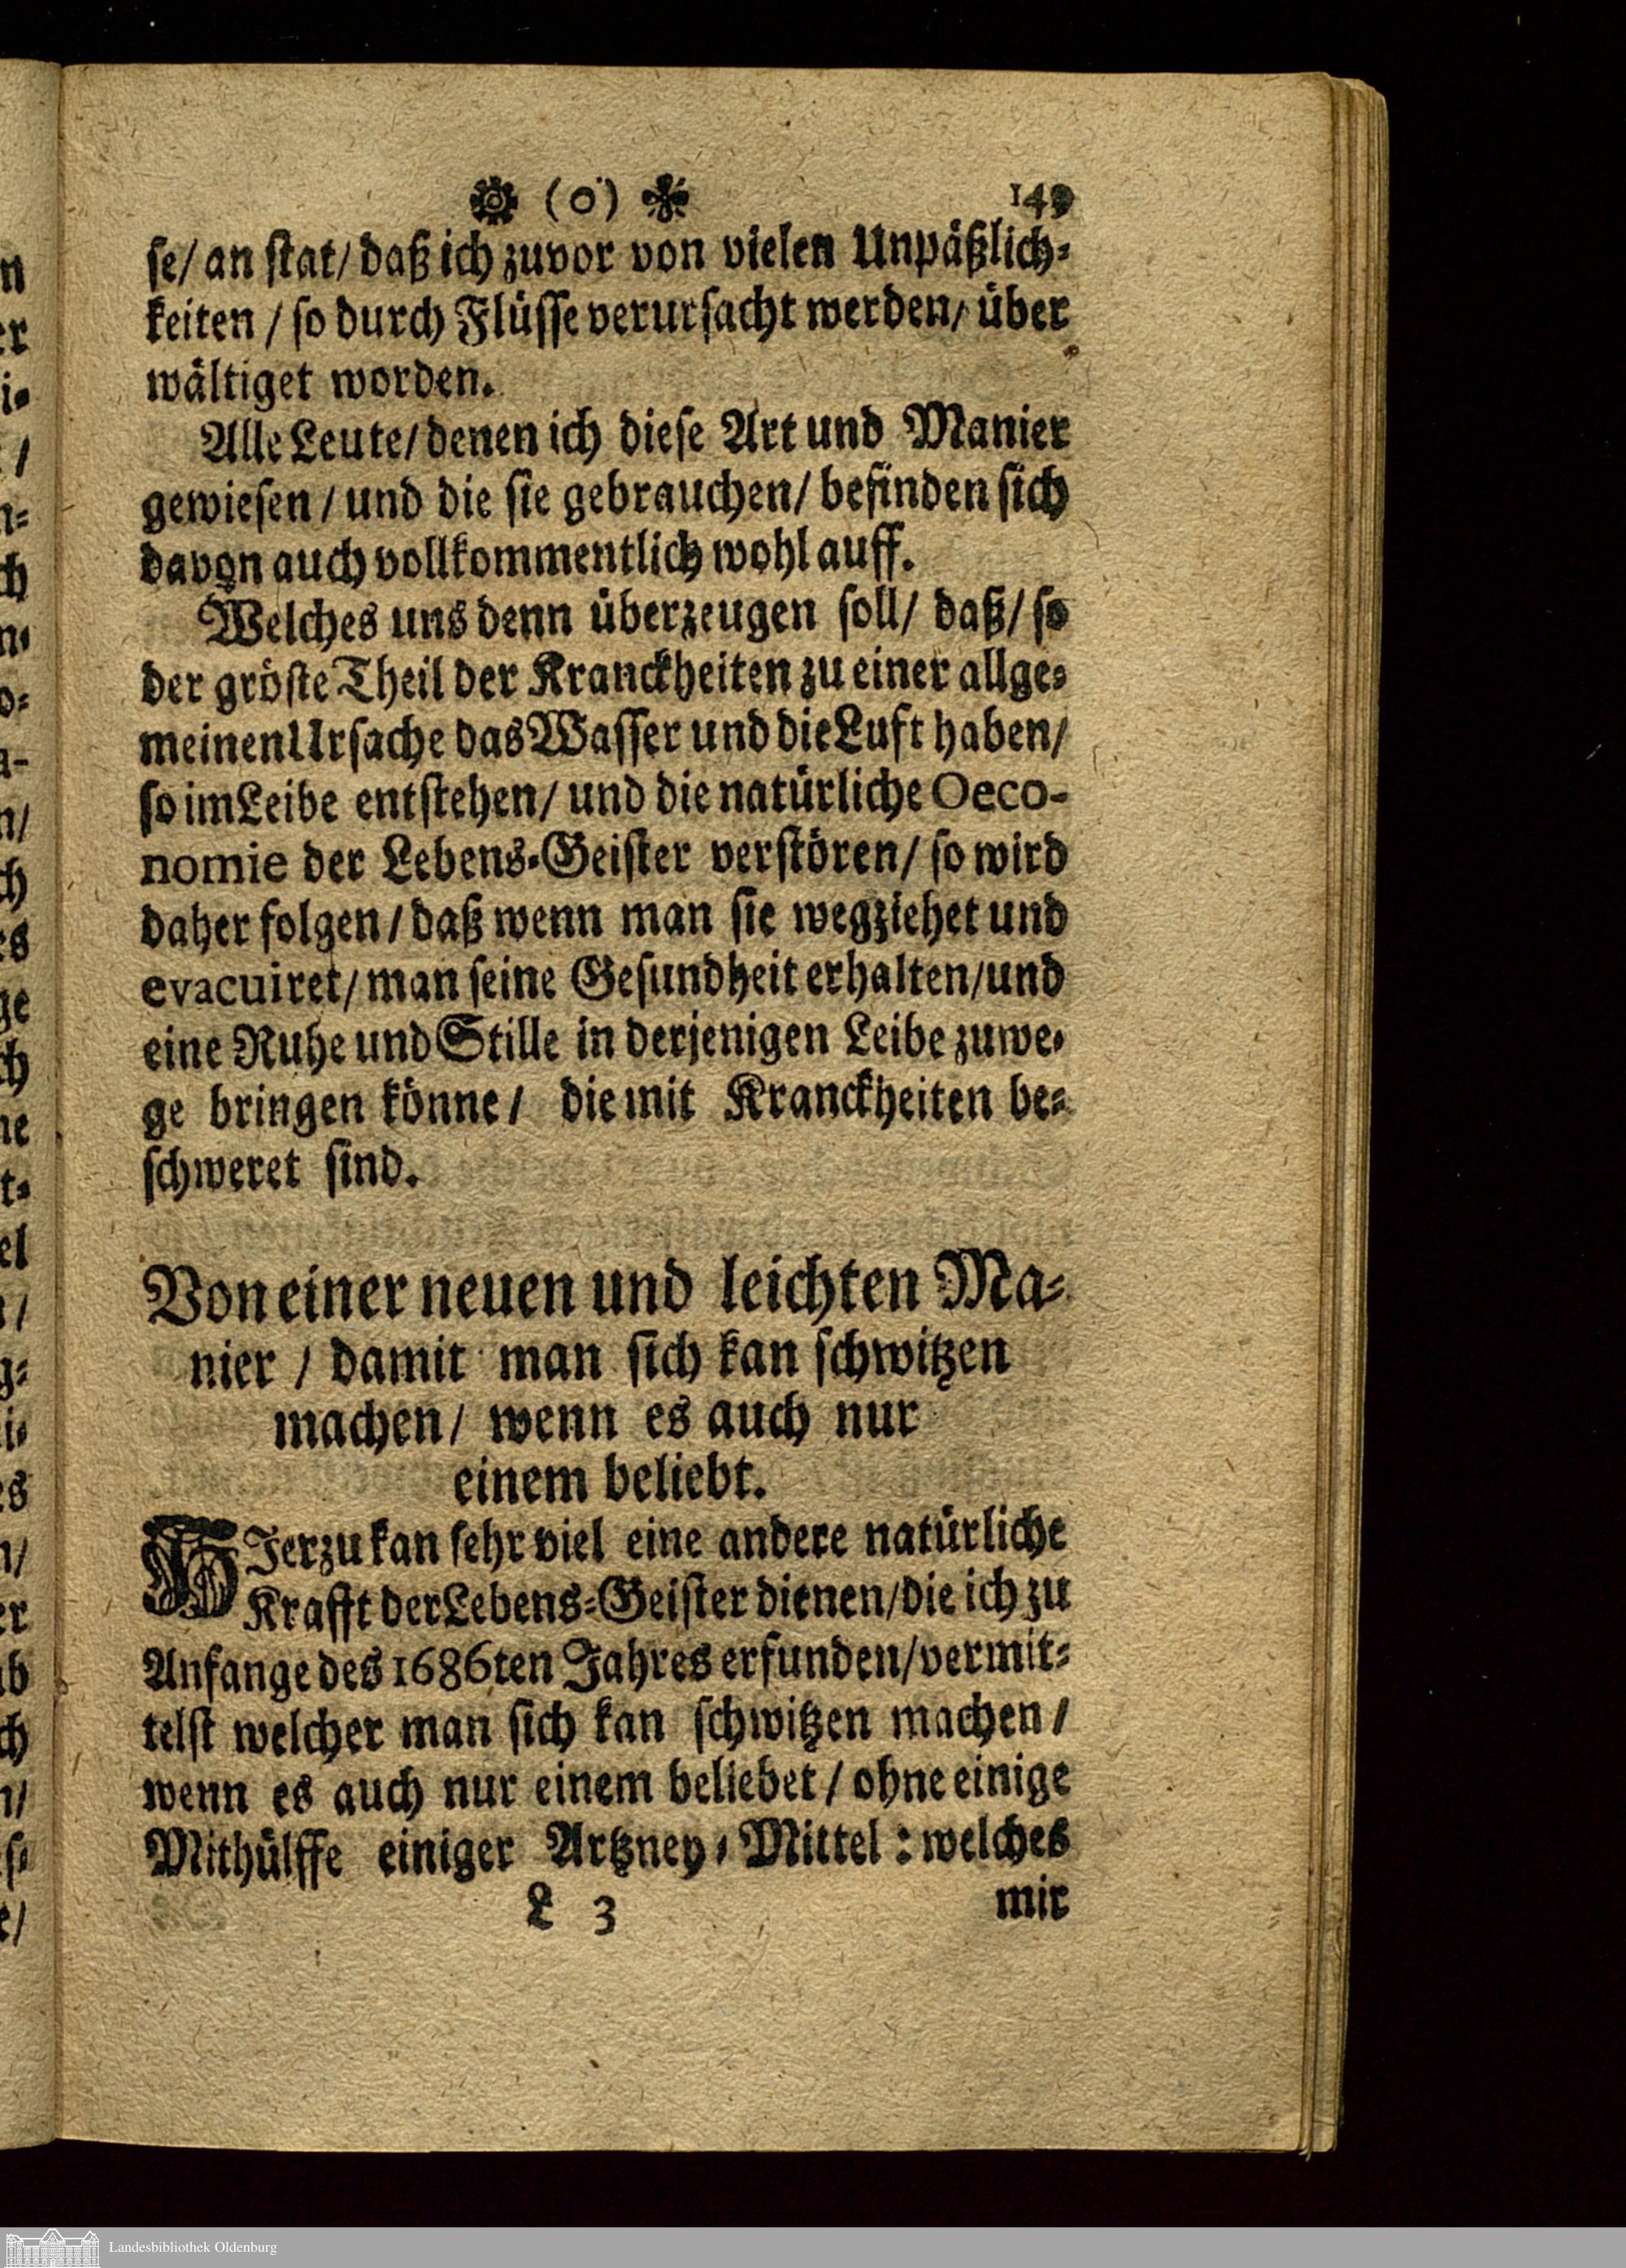 (o) 149
se/ an stat/ daß ich zuvor von vielen Unpäßlich-
keiten / so durch Flüsse verursacht werden/ über
wältiget worden.
Alle Leute/ denen ich diese Art und Manier
gewiesen / und die sie gebrauchen/ befinden sich
davon auch vollkommentlich wohl auff.
Welches uns denn überzeugen soll/ daß/ so
der gröste Theil der Kranckheiten zu einer allge-
meinen Ursache das Wasser und die Luft haben/
so im Leibe entstehen/ und die natürliche Oeco-
nomie der Lebens-Geister verstören/ so wird
daher folgen / daß wenn man sie wegziehet und
evacuiret/ man seine Gesundheit erhalten/ und
eine Ruhe und Stille in derjenigen Leibe zuwe-
ge bringen könne / die mit Kranckheiten be-
schweret sind.
Von einer neuen und leichten Ma-
nier / damit man sich kan schwitzen
machen/ wenn es auch nur
einem beliebt.
HIerzu kan sehr viel eine andere natürliche
Krafft der Lebens-Geister dienen/ die ich zu
Anfange des 1686ten Jahres erfunden/ vermit-
telst welcher man sich kan schwitzen machen /
wenn es auch nur einem beliebet / ohne einige
Mithülffe einiger Artzney-Mittel: welches
L 3 mir
Landesbibliothek Oldenburg